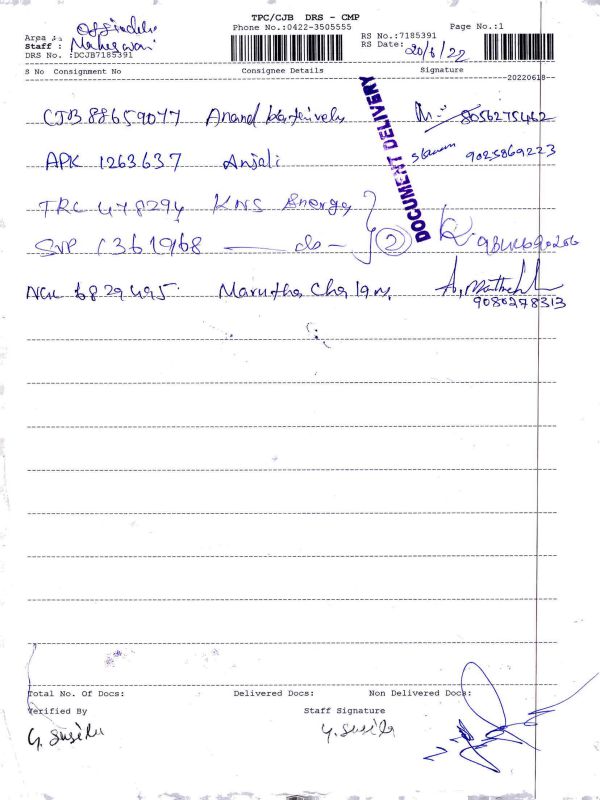 TPC/CJB DRS - CMP
Phone No.:0422-3505555
Page No.:1
Area :
Staff : Maheswari
DRS No. :DCJB7185391
RS No.:7185391
RS Date: 20/6/22
S No Consignment No Consignee Details Signature
20220618
CJB 88659077 Anand 8056275462
APK 1263637 Anjali 9025869223
DOCUMENT DELIVERY
TRC 478294 KNS Energy
SVP 1361968 — do — 2
NGL 6829495 Marutha Chalam
9080278313
Total No. Of Docs: Delivered Docs: Non Delivered Docs:
Verified By Staff Signature
Y. Susila Y. Susila